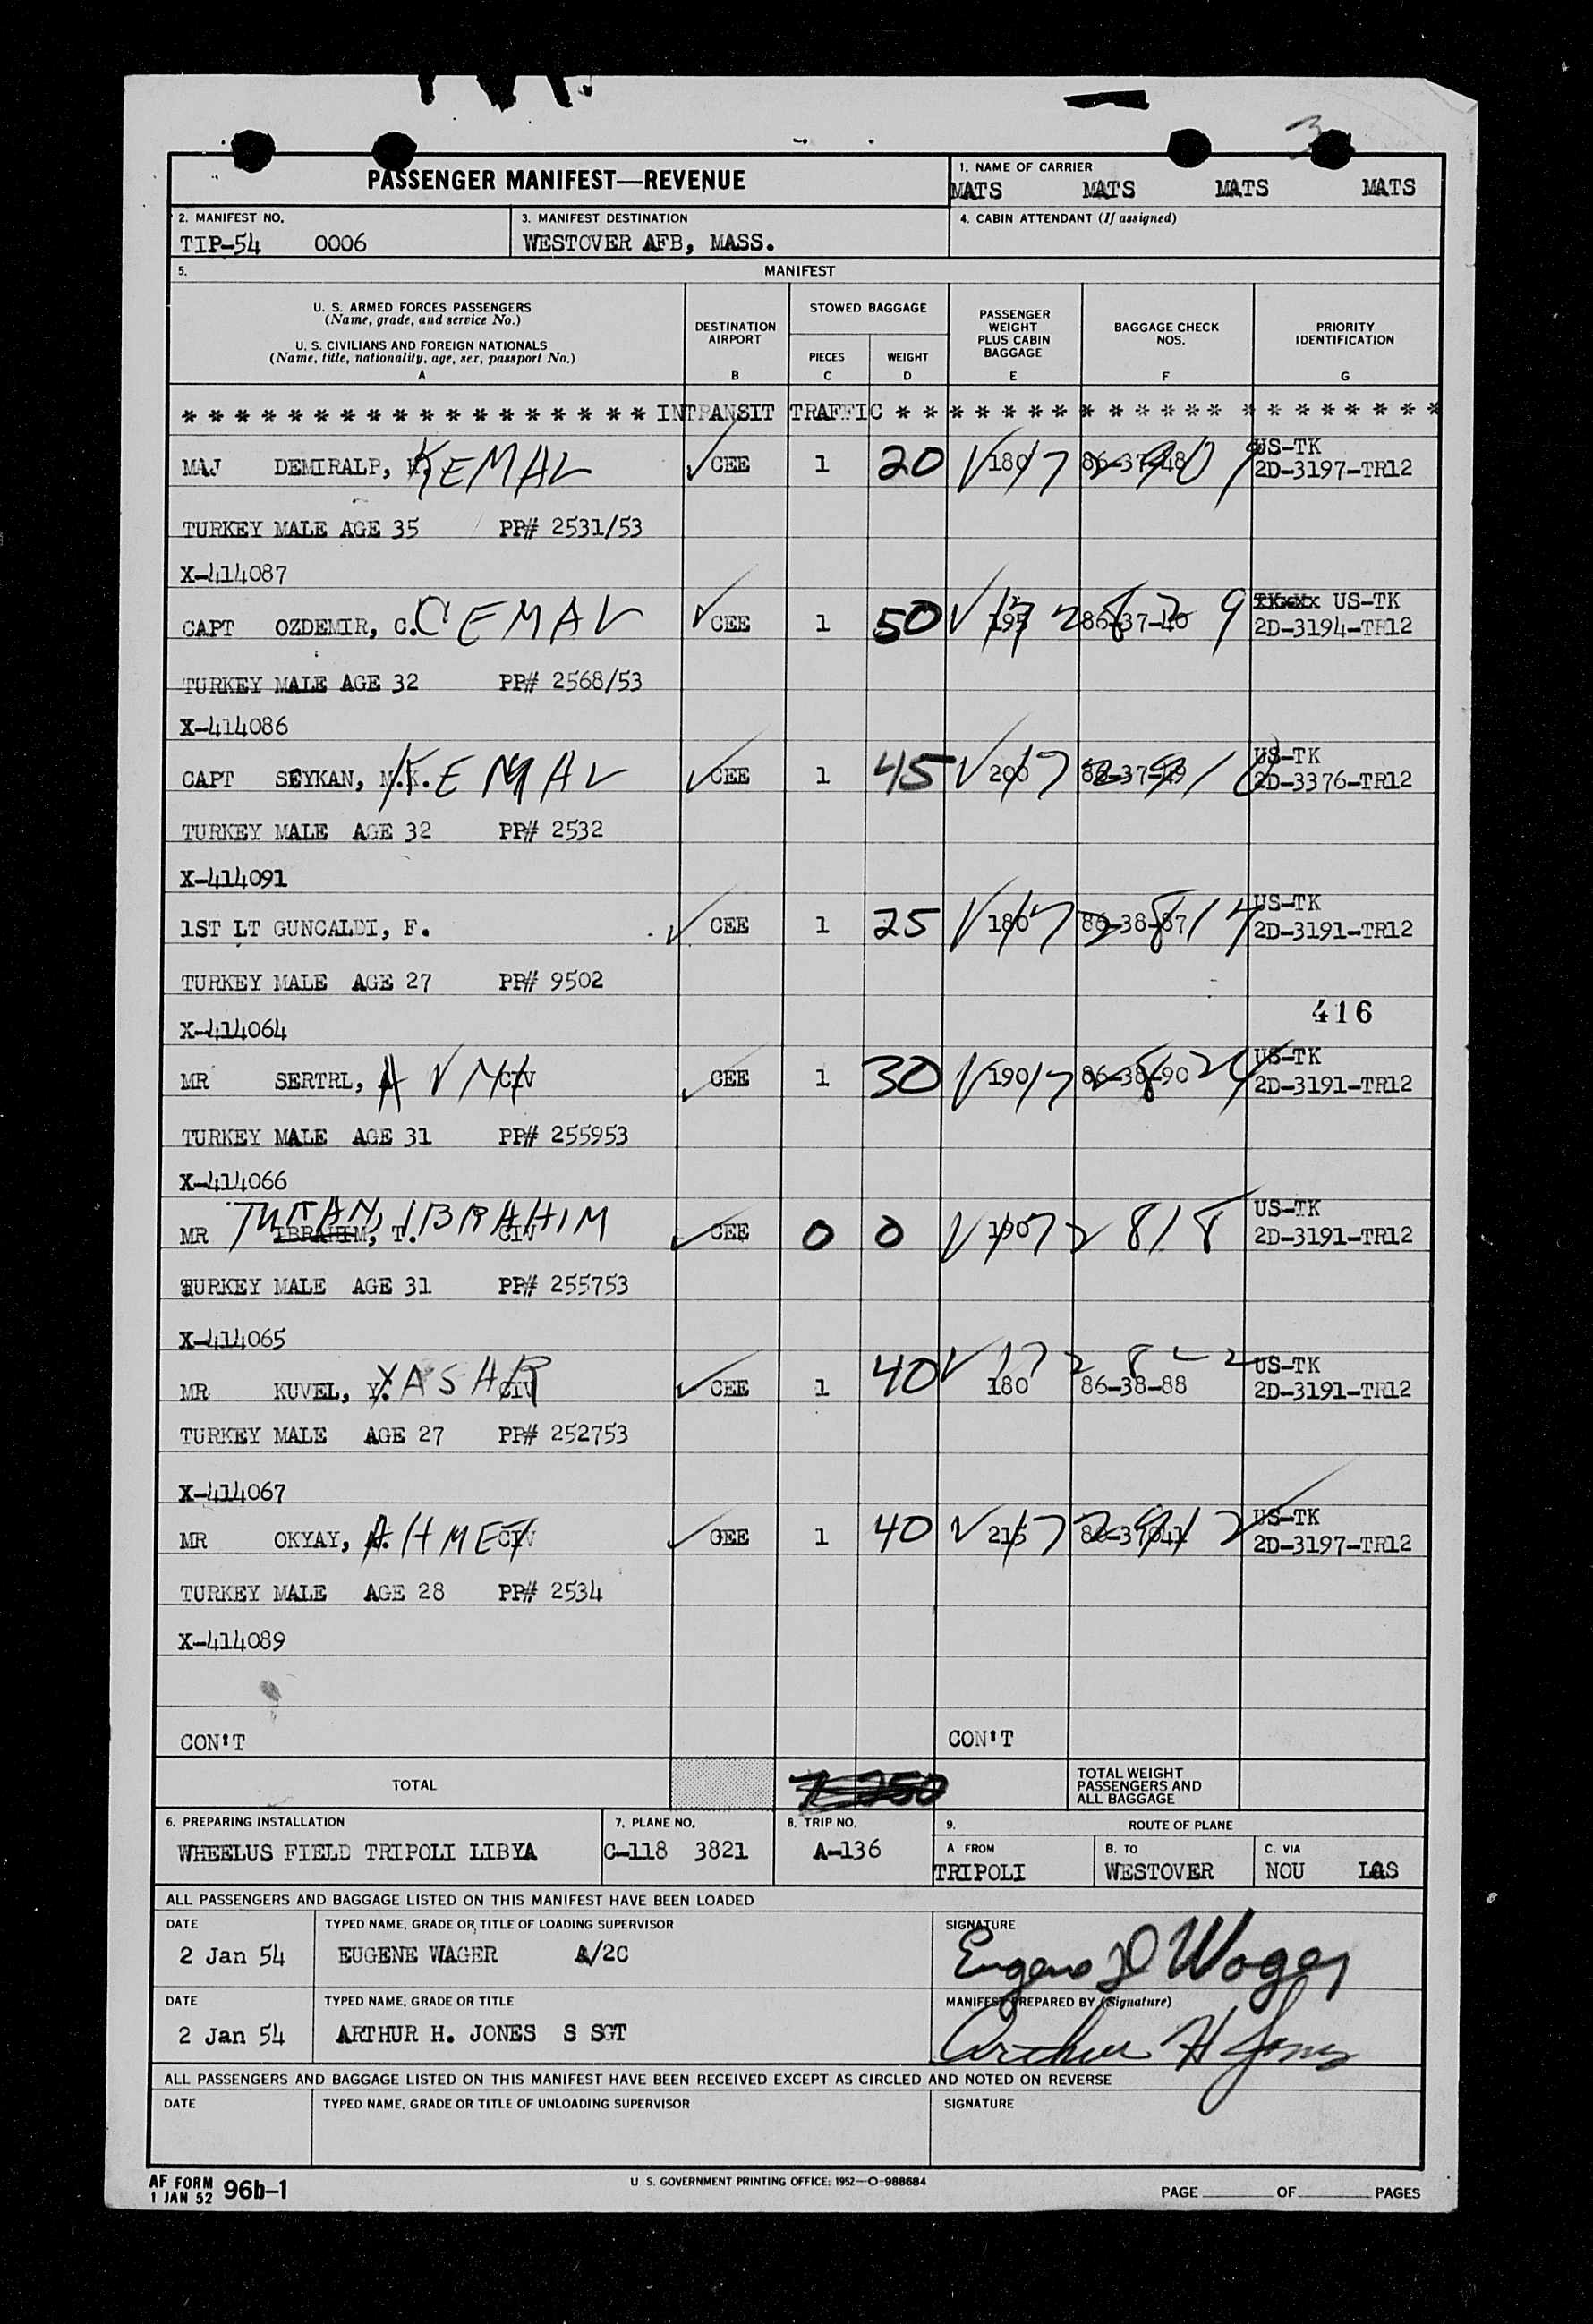 3
PASSENGER MANIFEST—REVENUE
1. NAME OF CARRIER
MATS MATS MATS MATS
2. MANIFEST NO.
TIP-54 0006
3. MANIFEST DESTINATION
WESTOVER AFB, MASS.
4. CABIN ATTENDANT (If assigned)
5. MANIFEST
U. S. ARMED FORCES PASSENGERS
(Name, grade, and service No.)
U. S. CIVILIANS AND FOREIGN NATIONALS
(Name, title, nationality, age, sex, passport No.)
A
DESTINATION AIRPORT
B
STOWED BAGGAGE
PIECES
C
WEIGHT
D
PASSENGER WEIGHT PLUS CABIN BAGGAGE
E
BAGGAGE CHECK NOS.
F
PRIORITY IDENTIFICATION
G
* * * * * * * * * * * * * * * * * * INTRANSIT TRAFFIC * * * * * * * * * * * * * * * * * * * * *
US-TK
MAJ DEMIRALP, KEMAL CEE 1 20 180 86-37-48 2D-3197-TR12
TURKEY MALE AGE 35 PP# 2531/53
X-414087
US-TK
CAPT OZDEMIR, C. CEMAL CEE 1 50 195 86-37-40 2D-3194-TR12
TURKEY MALE AGE 32 PP# 2568/53
X-414086
US-TK
CAPT SEYKAN, M.K. KEMAL CEE 1 45 200 86-37-49 2D-3376-TR12
TURKEY MALE AGE 32 PP# 2532
X-414091
US-TK
1ST LT GUNCALDI, F. CEE 1 25 180 86-38-87 2D-3191-TR12
TURKEY MALE AGE 27 PP# 9502
416
X-414064
US-TK
MR SERTRL, AVNI CIV CEE 1 30 190 86-38-90 2D-3191-TR12
TURKEY MALE AGE 31 PP# 255953
X-414066
TURAN, IBRAHIM US-TK
MR IBRAHIM, T. CIV CEE 0 0 190 172 818 2D-3191-TR12
TURKEY MALE AGE 31 PP# 255753
X-414065
172 822 US-TK
MR KUVEL, Y. YASHR CIV CEE 1 40 180 86-38-88 2D-3191-TR12
TURKEY MALE AGE 27 PP# 252753
X-414067
US-TK
MR OKYAY, A. AHMET CIV CEE 1 40 215 86-37-41 2D-3197-TR12
TURKEY MALE AGE 28 PP# 2534
X-414089
CON'T CON'T
TOTAL
7 250
TOTAL WEIGHT PASSENGERS AND ALL BAGGAGE
6. PREPARING INSTALLATION
WHEELUS FIELD TRIPOLI LIBYA
7. PLANE NO.
C-118 3821
8. TRIP NO.
A-136
9. ROUTE OF PLANE
A FROM
TRIPOLI
B. TO
WESTOVER
C. VIA
NOU LGS
ALL PASSENGERS AND BAGGAGE LISTED ON THIS MANIFEST HAVE BEEN LOADED
DATE
2 Jan 54
TYPED NAME, GRADE OR TITLE OF LOADING SUPERVISOR
EUGENE WAGER A/2C
SIGNATURE
Eugene D Wager
DATE
2 Jan 54
TYPED NAME, GRADE OR TITLE
ARTHUR H. JONES S SGT
MANIFEST PREPARED BY (Signature)
Arthur H Jones
ALL PASSENGERS AND BAGGAGE LISTED ON THIS MANIFEST HAVE BEEN RECEIVED EXCEPT AS CIRCLED AND NOTED ON REVERSE
DATE
TYPED NAME, GRADE OR TITLE OF UNLOADING SUPERVISOR
SIGNATURE
AF FORM 1 JAN 52 96b-1
U. S. GOVERNMENT PRINTING OFFICE: 1952—O-988684
PAGE OF PAGES